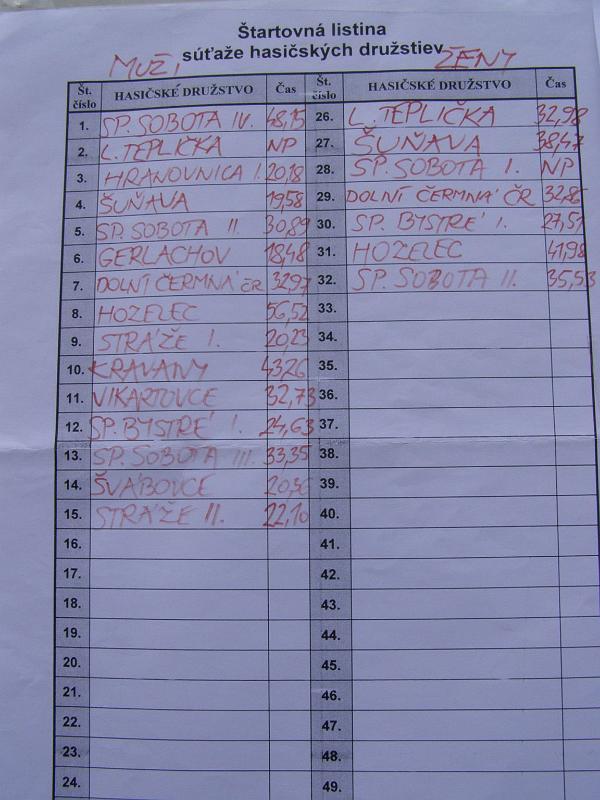 Štartovná listina
súťaže hasičských družstiev
MUŽI
ŽENY
Št. číslo HASIČSKÉ DRUŽSTVO Čas Št. číslo HASIČSKÉ DRUŽSTVO Čas
1. SP. SOBOTA IV. 48,15 26. L. TEPLIČKA 32,98
2. L. TEPLIČKA NP 27. ŠUŇAVA 38,47
3. HRANOVNICA I. 20,18 28. SP. SOBOTA I. NP
4. ŠUŇAVA 19,58 29. DOLNÍ ČERMNÁ ČR 32,86
5. SP. SOBOTA II. 30,89 30. SP. BYSTRÉ I. 27,51
6. GERLACHOV 18,48 31. HOZELEC 41,98
7. DOLNÍ ČERMNÁ ČR 32,97 32. SP. SOBOTA II. 35,53
8. HOZELEC 56,52 33.
9. STRÁŽE I. 20,23 34.
10. KRAVANY 43,26 35.
11. VIKARTOVCE 32,73 36.
12. SP. BYSTRÉ I. 24,63 37.
13. SP. SOBOTA III. 33,35 38.
14. ŠVÁBOVCE 39.
15. STRÁŽE II. 22,10 40.
16. 41.
17. 42.
18. 43.
19. 44.
20. 45.
21. 46.
22. 47.
23. 48.
24. 49.